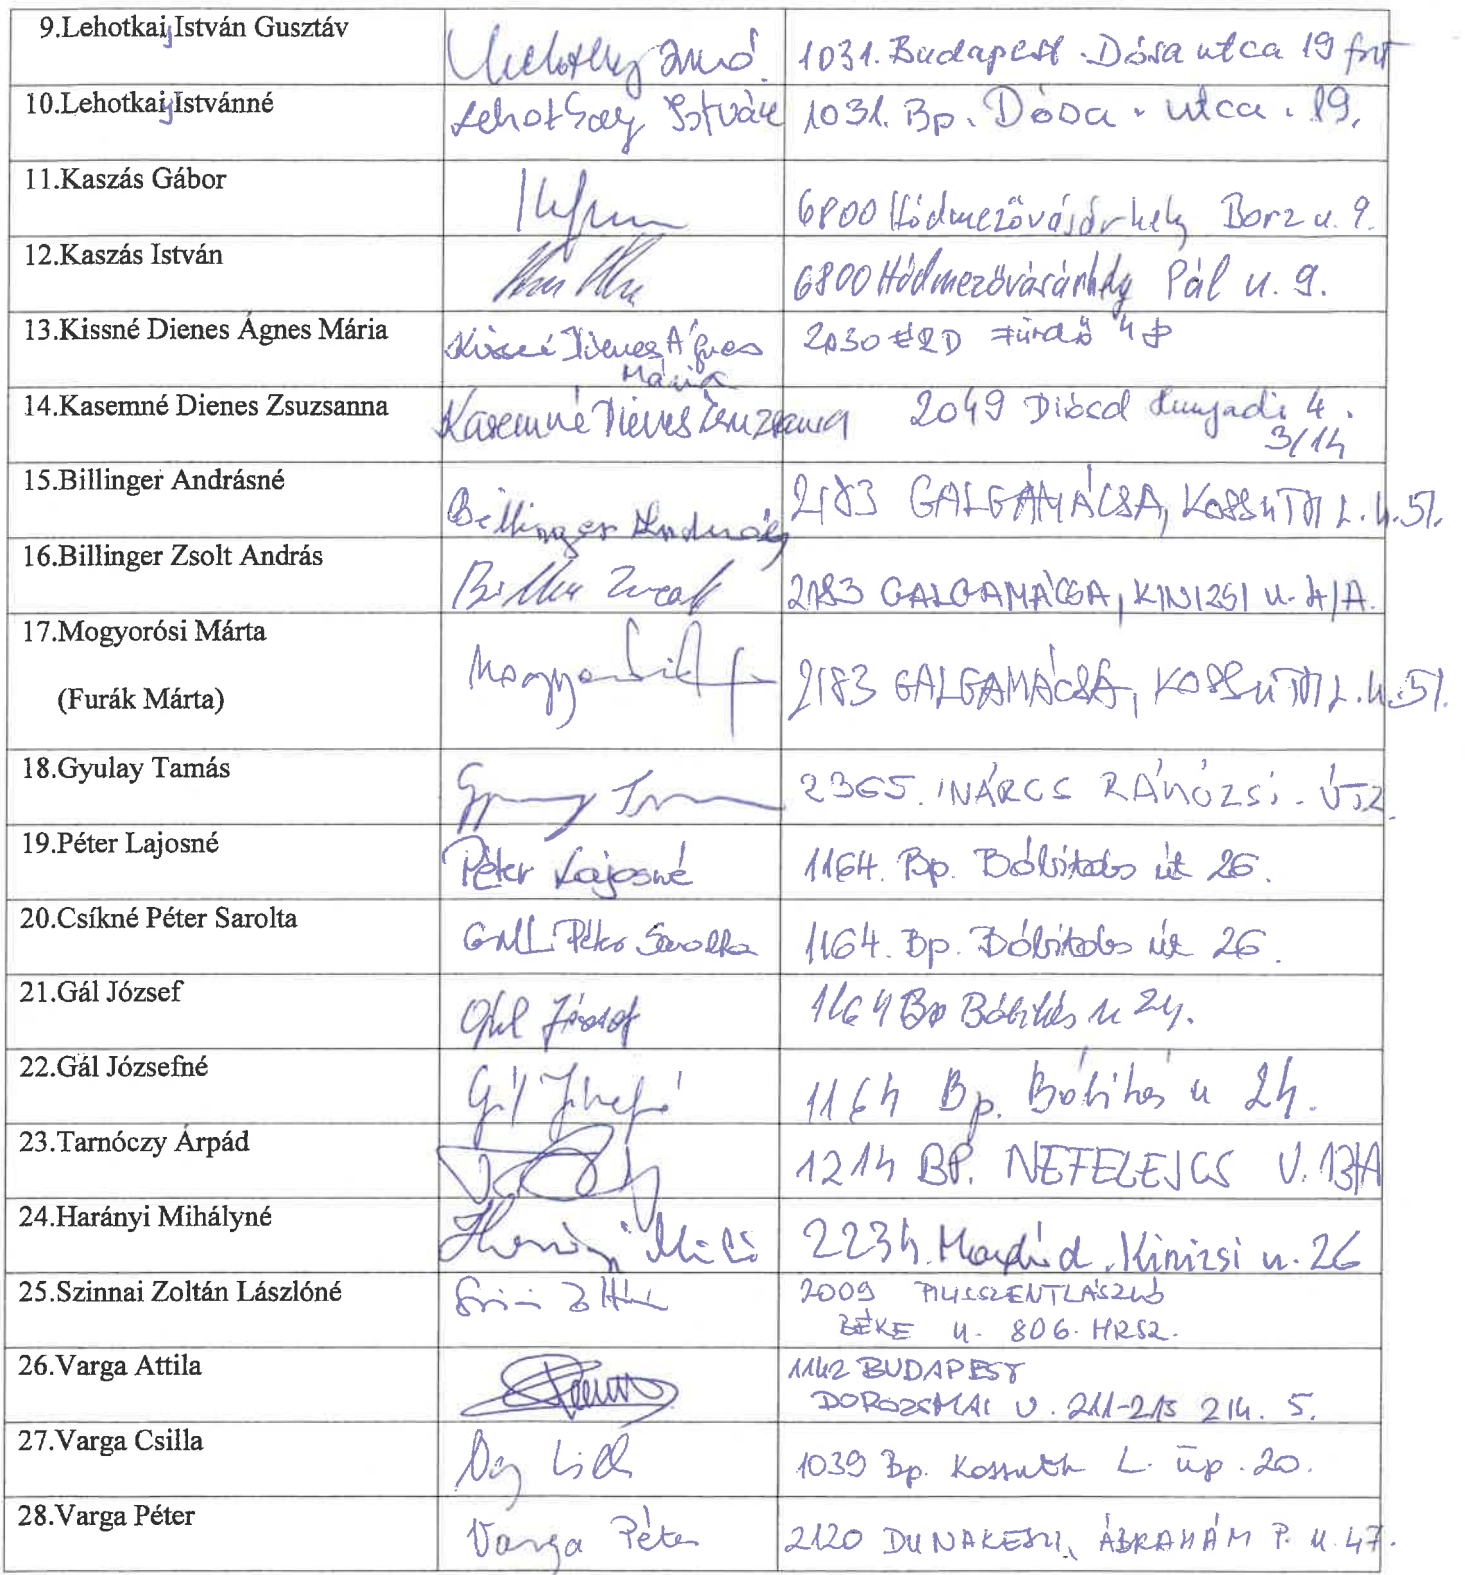 9.Lehotkay István Gusztáv 1031. Budapest. Dósa utca 19
10.Lehotkay Istvánné Lehotkay Istváné 1031. Bp. Dósa utca. 19.
11.Kaszás Gábor 6800 Hódmezővásárhely Borz u. 9.
12.Kaszás István 6800 Hódmezővásárhely Pál u. 9.
13.Kissné Dienes Ágnes Mária Kissné Dienes Ágnes 2030 ÉRD Fürdő 4
Mária
14.Kasemné Dienes Zsuzsanna Kasemné Dienes Zsuzsanna 2049 Diósd Hunyadi 4.
3/14
15.Billinger Andrásné Billinger Andrásné 2183 GALGAMÁCSA, KOSSUTH L. u. 51.
16.Billinger Zsolt András 2183 GALGAMÁCSA, KINIZSI u. 4/A.
17.Mogyorósi Márta 2183 GALGAMÁCSA, KOSSUTH L. u. 51.
(Furák Márta)
18.Gyulay Tamás 2365. INÁRCS RÁKÓZSI.
19.Péter Lajosné Péter Lajosné 1164. Bp. Bóbitás út 26.
20.Csíkné Péter Sarolta Péter Sarolta 1164. Bp. Bóbitás út 26.
21.Gál József Gál József 1164 Bp Bóbitás u 24.
22.Gál Józsefné Gál Józsefné 1164 Bp. Bóbitás u 24.
23.Tarnóczy Árpád 1214 BP. NEFELEJCS U. 13/A
24.Harányi Mihályné 2234. Maglód. Kinizsi u. 26
25.Szinnai Zoltán Lászlóné 2009 PILISSZENTLÁSZLÓ
BÉKE u. 806. HRSZ.
26.Varga Attila 1142 BUDAPEST
DOROZSMAI U. 211-215 214. 5.
27.Varga Csilla 1039 Bp. Kossuth L. üp. 20.
28.Varga Péter Varga Péter 2120 DUNAKESZI, ÁBRAHÁM P. u. 47.